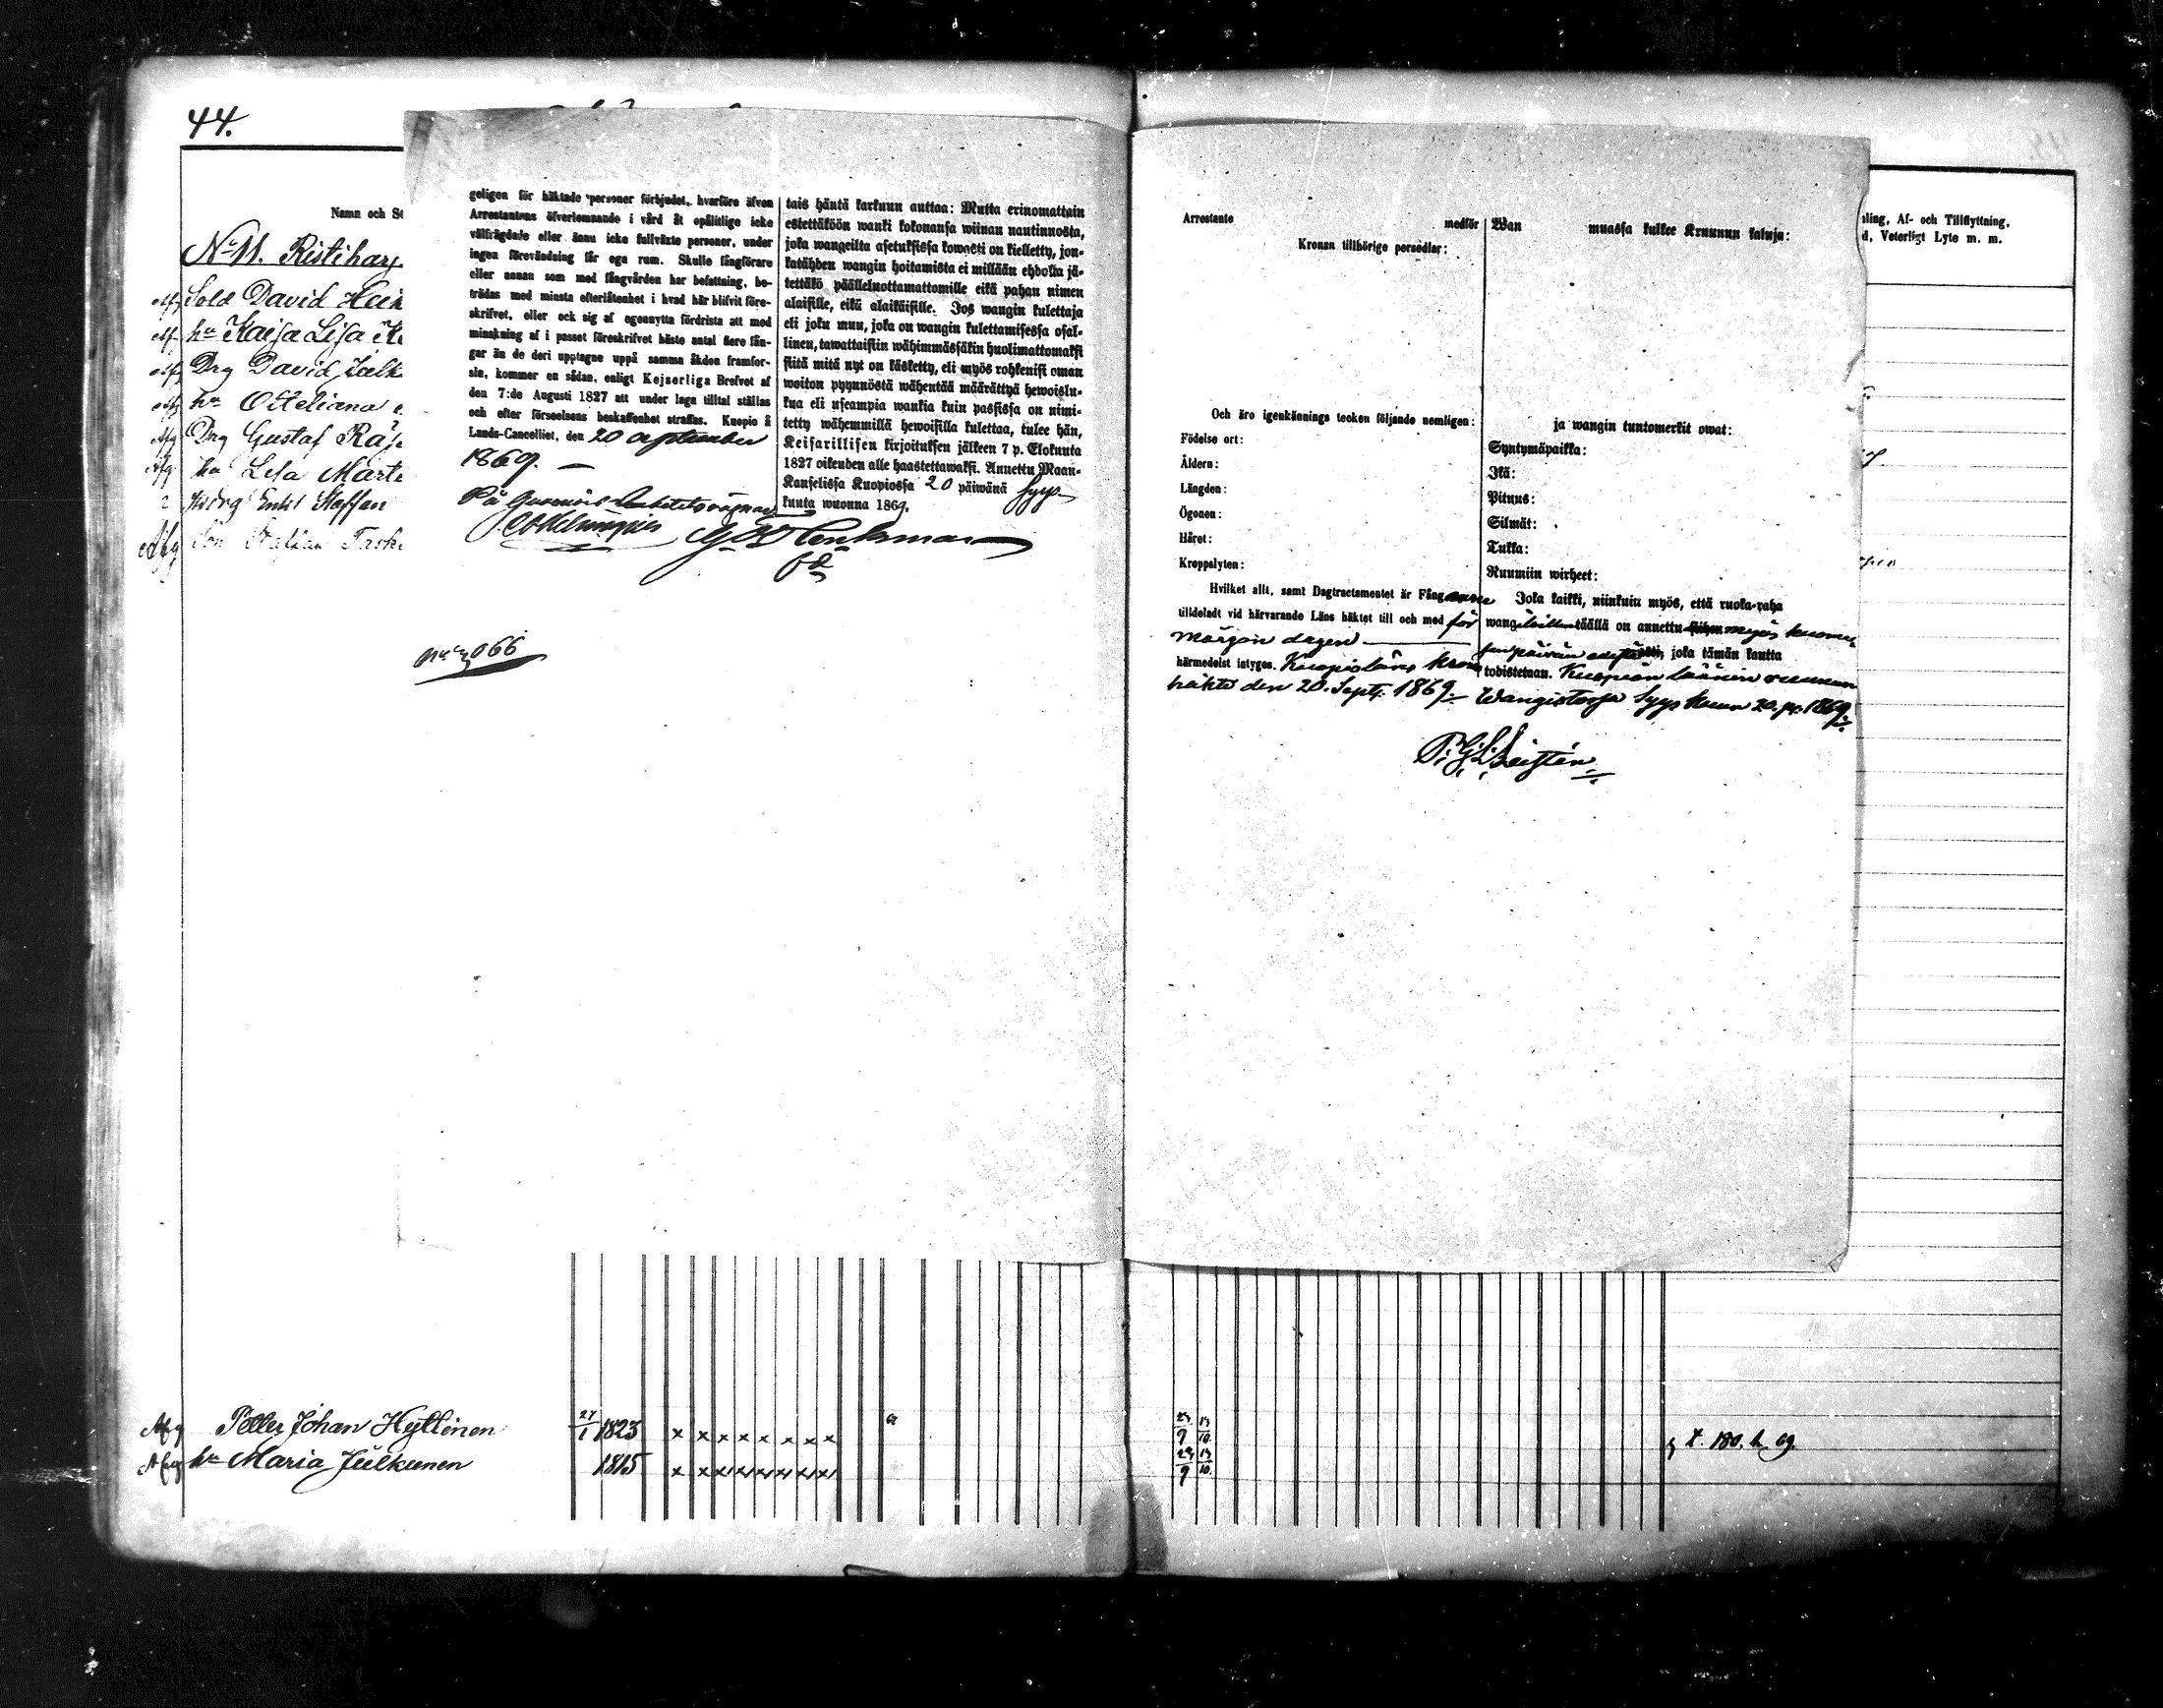 44.
Namn och St
No 11. Ristiharj
Afg Sold David Hein
Afg hu Kaisa Lisa
Afg Drg David Julk
Afg hu Otteliana
Afg Drg Gustaf Räs
Afg hu Lisa Marte
Enkl Staffan
Afg Son Staffan Task
geligen för häktade personer förbjudet, hvarföre äfven
Arrestantens öfverlemnande i vård åt opålitlige icke
välfrägdade eller ännu icke fullväxte personer, under
ingen förevändning får ega rum. Skulle fångförare
eller annan som med fångvården har befattning, be-
trädas med minsta efterlåtenhet i hvad här blifvit före-
skrifvet, eller ock sig af egennytta fördrista att med
minskning af i passet föreskrifvet häste antal flere fån-
gar än de deri upptagne uppå samma åkdon framfor-
sla, kommer en sådan, enligt Kejserliga Brefvet af
den 7:de Augusti 1827 att under laga tilltal ställas
och efter förseelsens beskaffenhet straffas. Kuopio å
Lands-Cancelliet, den 20 September
1869. —
På Guvernörs-Embetets vägnar
tais häntä karkuun auttaa: Mutta erinomattain
estettäköön wanki kokonansa wiinan nautinnosta,
joka wangeilta asetuksissa kowasti on kielletty, jon-
katähden wangin hoitamista ei millään ehdolla jä-
tettäkö päälleluottamattomille eikä pahan nimen
alaisille, eikä alaikäisille. Jos wangin kulettaja
eli joku muu, joka on wangin kulettamisessa osal-
linen, tawattaisiin wähimmässäkin huolimattomaksi
siitä mitä nyt on käsketty, eli myös rohkenisi oman
woiton pyynnöstä wähentää määrättyä hewoislu-
kua eli useampia wankia kuin passissa on nimi-
tetty wähemmillä hewoisilla kulettaa, tulee hän,
Keisarillisen kirjoituksen jälkeen 7 p. Elokuuta
1827 oikeuden alle haastettawaksi. Annettu Maan-
Kanselissa Kuopiossa 20 päiwänä Syys-
kuuta wuonna 1869.
Arrestante medför
Kronan tillhörige persedlar:
Och äro igenkännings tecken följande nemligen:
Födelse ort:
Åldern:
Längden:
Ögonen:
Håret:
Kroppslyten:
Hvilket allt, samt Dagtractamentet är Fångarne
tilldeladt vid härvarande Läns häktet till och med för
morgon dagen
härmedelst intyges. Kuopio läns krono
häkte den 20. Sept. 1869.
Wan muassa kulkee Kruunun kaluja:
ja wangin tuntomerkit owat:
Syntymäpaikka:
Ikä:
Pituus:
Silmät:
Tukka:
Ruumiin wirheet:
Joka kaikki, niinkuin myös, että ruoka-raha
wangeille täällä on annettu myös huomen
senpäivän edestä, joka tämän kautta
todistetaan. Kuopion läänin ruunun
Wangistossa Syys kuun 20. p. 1869.
ling, Af- och Tillflyttning,
d, Veterligt Lyte m. m.
Afg Petter Johan Hyttinen 27/1 1823 x x x x x x x x 24/9 14/10 t. 180. h 69.
Afg hu Maria Julkunen 1815 24/9 14/10